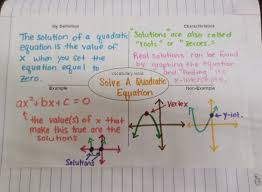 My Definition
The solution of a quadratic
equation is the value of
x when you set the
equation equal to
zero.
Characteristics
"Solutions" are also called
"roots" or "zeroes."
Real solutions can be found
by graphing the equation
and finding its
x-intercepts.
Vocabulary Word
Solve A Quadratic
Equation
Example
ax²+bx+c=0
↑ the value(s) of x that
make this true are the
solutions
Solutions
Non-Example
Vertex
y-int.